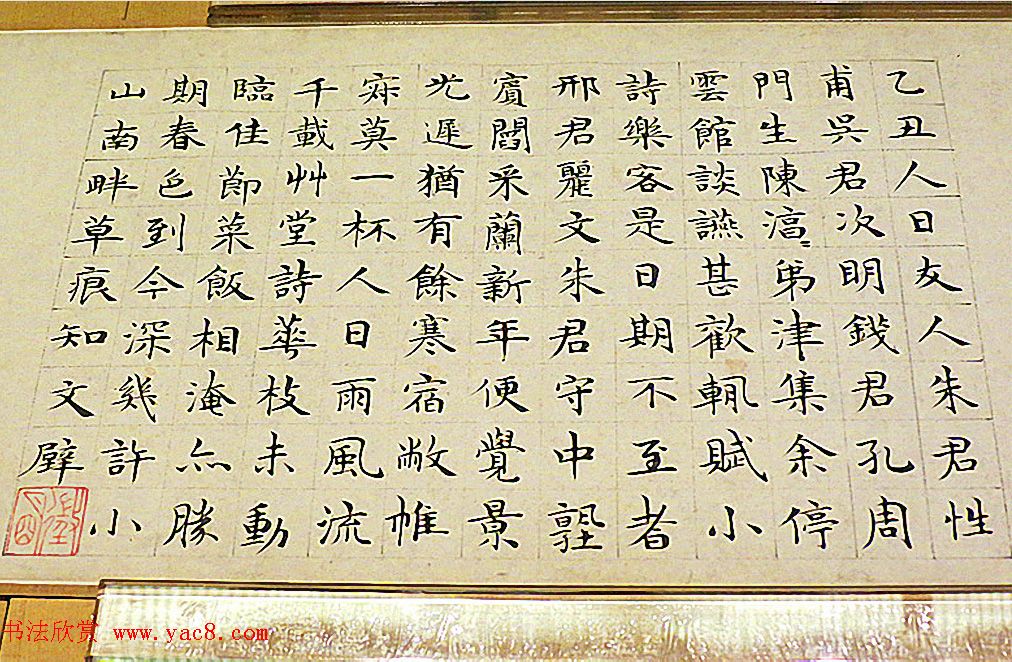 乙丑人日友人朱君性
甫吳君次明錢君孔周
門生陳湻〻弟津集余停
雲館談讌甚歡輒賦小
詩樂客是日期不至者
邢君麗文朱君守中塾
賔閻采蘭新年便覺景
光遲猶有餘寒宿敝帷
寂莫一杯人日雨風流
千載艸堂詩華枝未動
臨佳節菜飯相淹亦勝
期春色到今深幾許小
山南畔草痕知文壁
书法欣赏 www.yac8.com